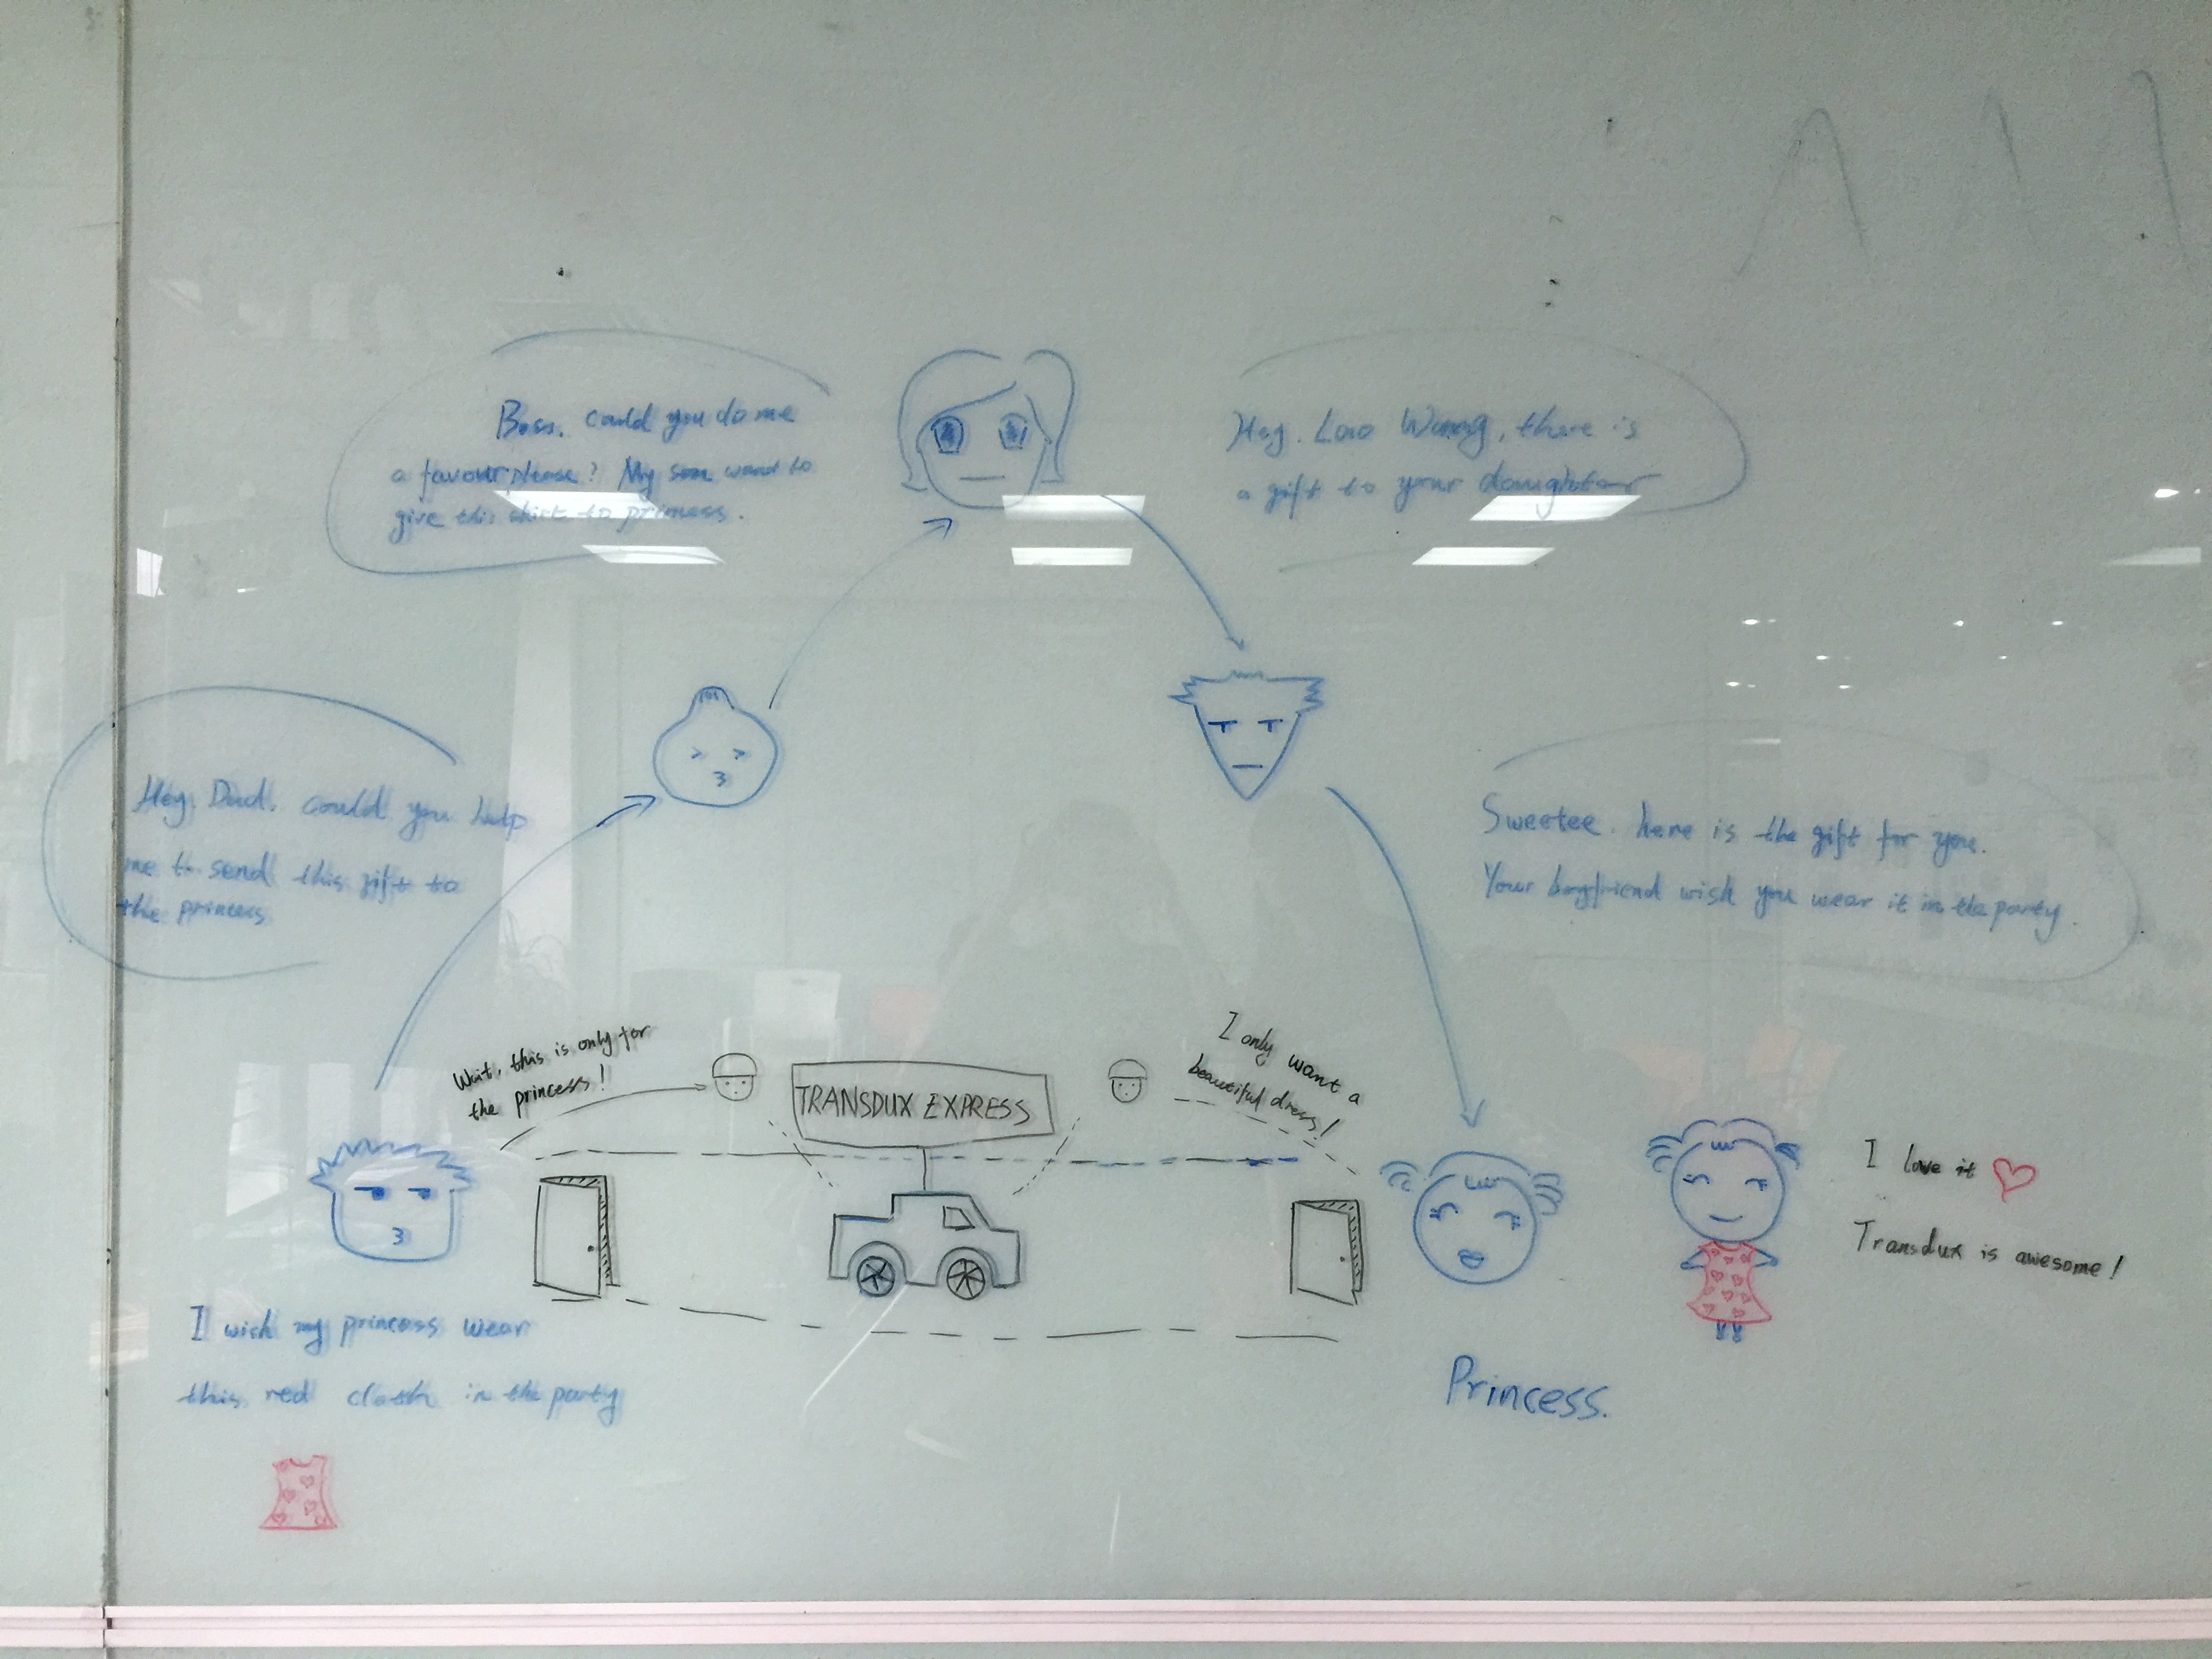 Boss. could you do me
a favour please? My son want to
give this shirt to princess.
Hey. Lao Wang, there is
a gift to your daughter
Hey, Dad. could you help
me to send this gift to
the princess
Sweetee. here is the gift for you.
Your boyfriend wish you wear it in the party.
Wait, this is only for
the princess!
TRANSDUX EXPRESS
I only want a
beautiful dress!
I love it
Transdux is awesome!
I wish my princess wear
this red cloth in the party
Princess.